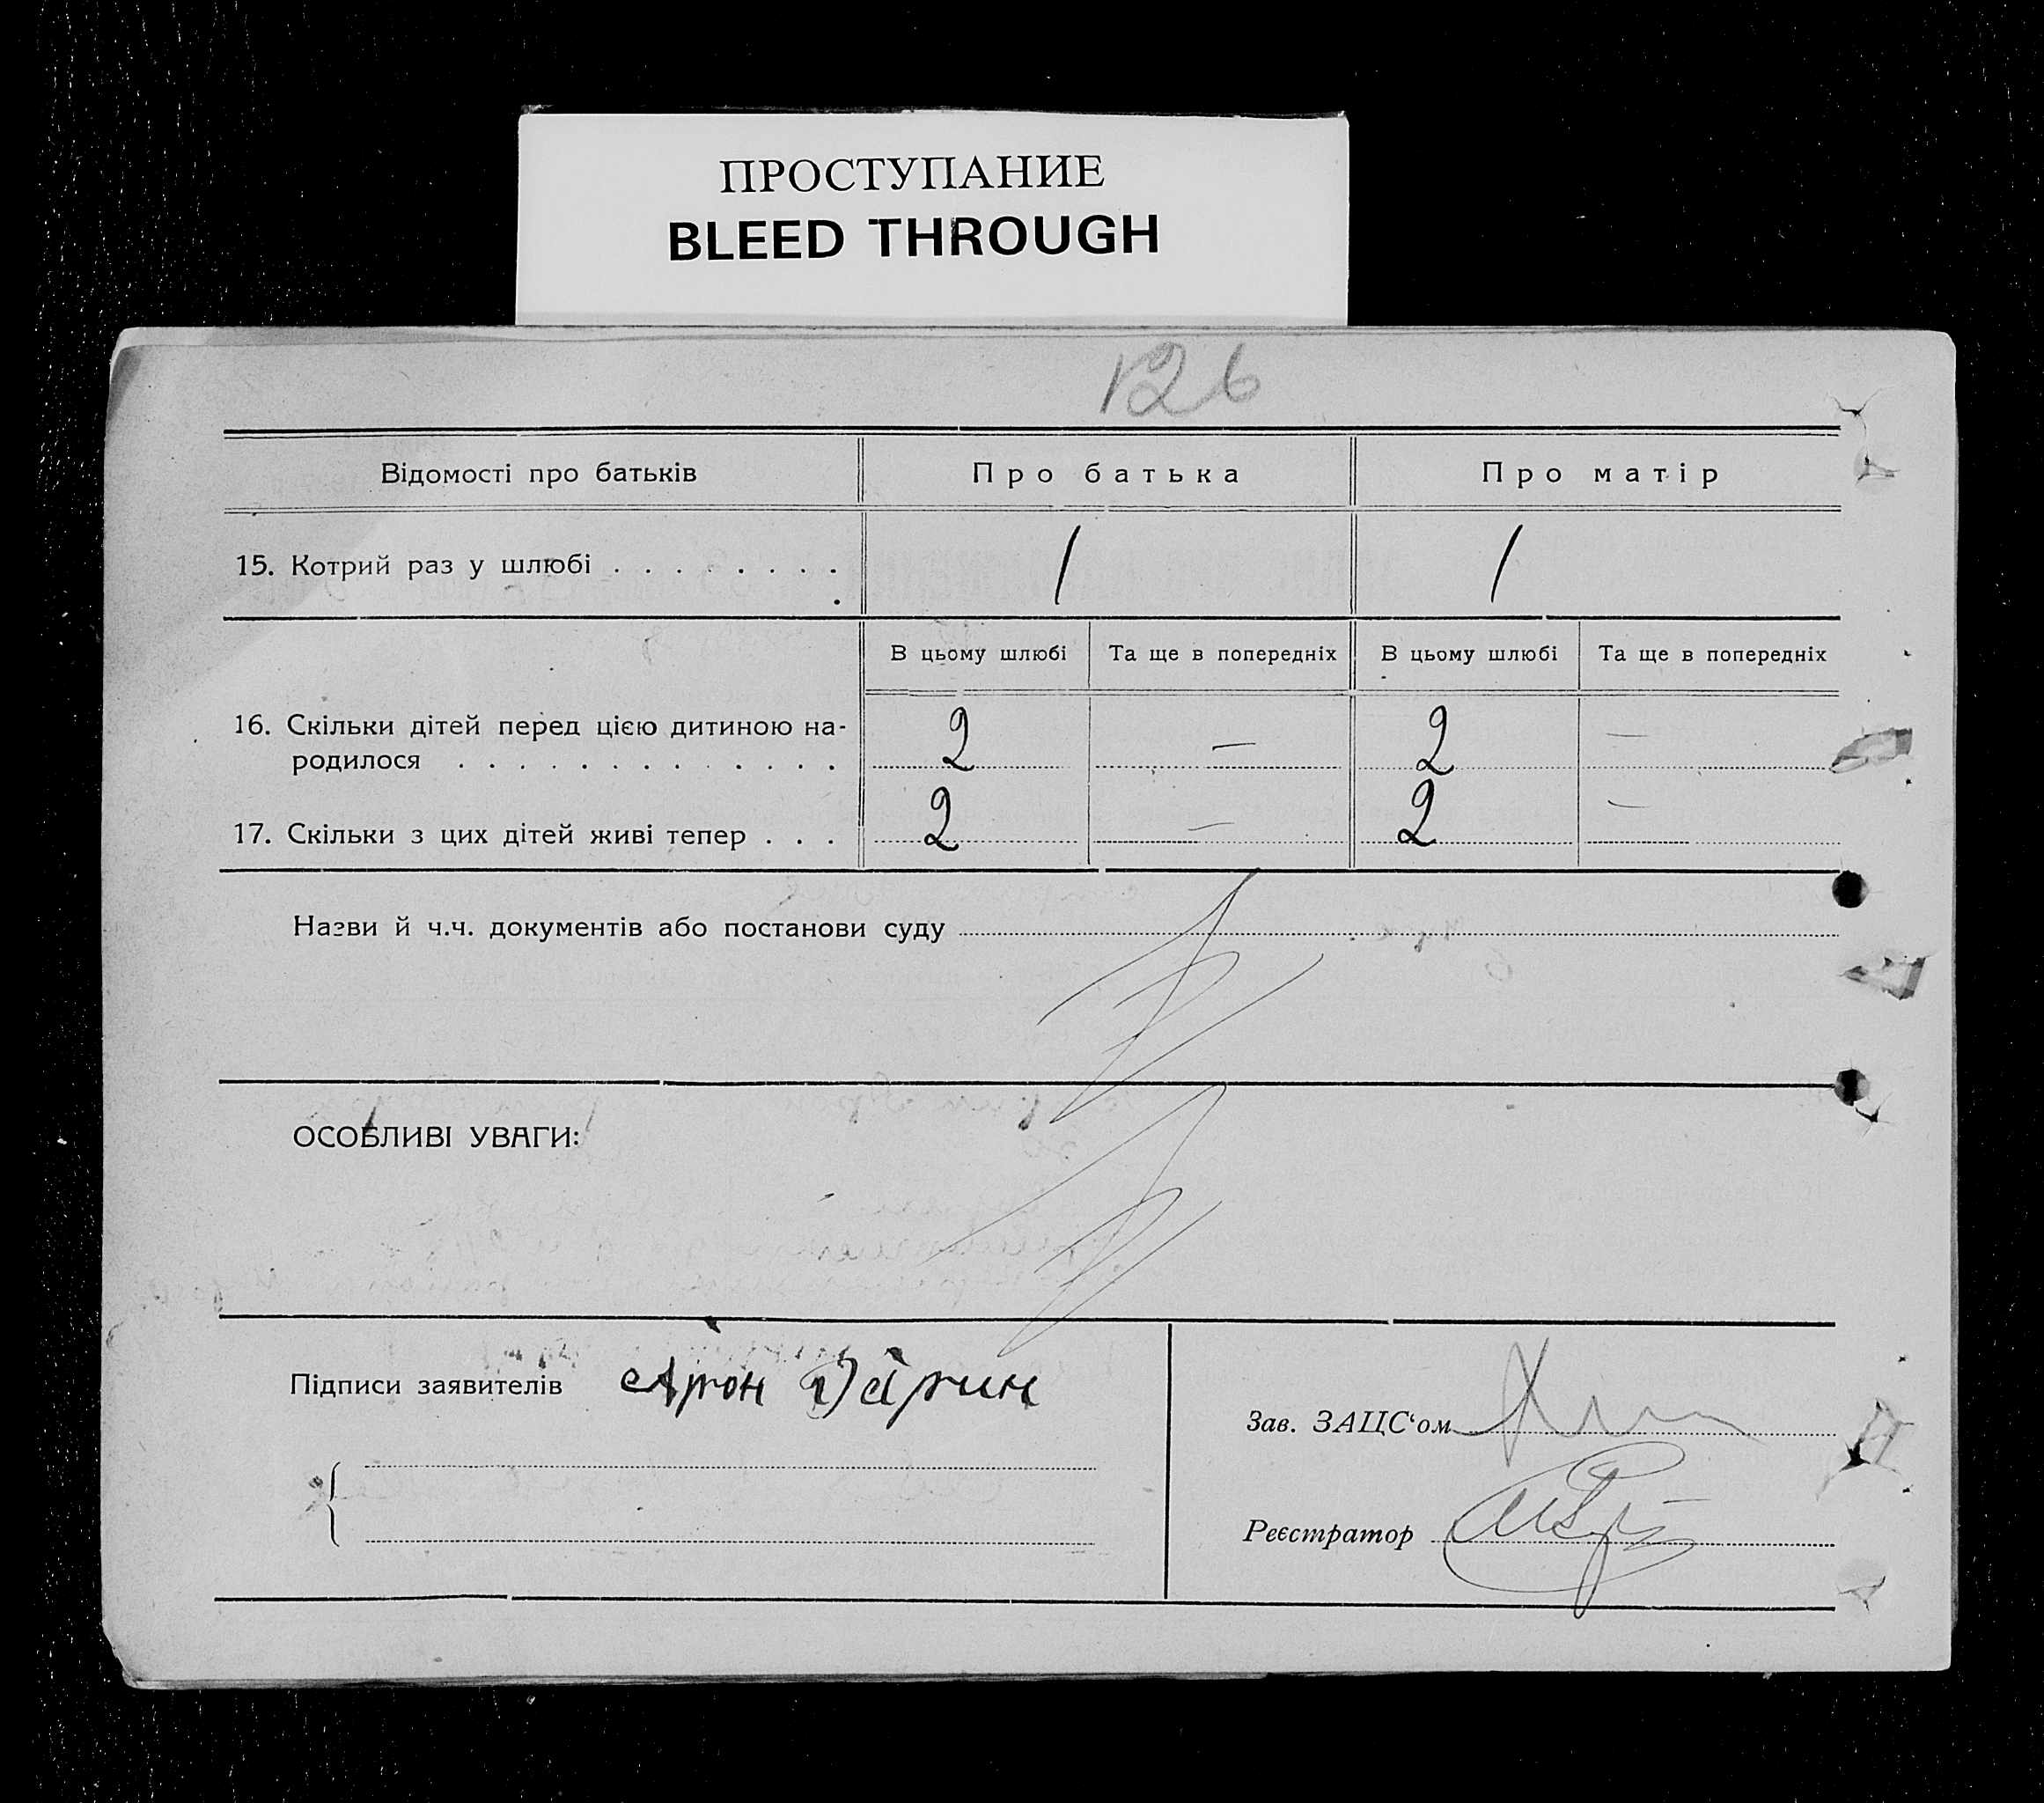 ПРОСТУПАНИЕ
BLEED THROUGH
126
Відомості про батьків Про батька Про матір
15. Котрий раз у шлюбі . . . . . . . . 1 1
В цьому шлюбі Та ще в попередніх В цьому шлюбі Та ще в попередніх
16. Скільки дітей перед цією дитиною на-
родилося . . . . . . . . . . . . . 2 — 2 —
17. Скільки з цих дітей живі тепер . . . 2 — 2 —
Назви й ч.ч. документів або постанови суду
ОСОБЛИВІ УВАГИ:
Підписи заявителів Арон
Зав. ЗАЦС‘ом
Реєстратор